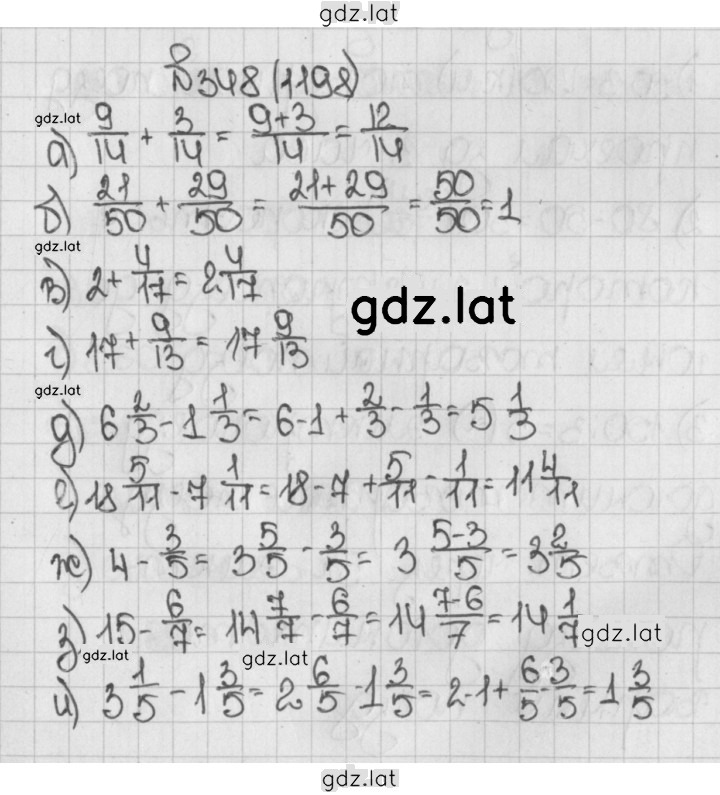 gdz.lat
№348 (1198)
gdz.lat
а) 9/14 + 3/14 = (9+3)/14 = 12/14
б) 21/50 + 29/50 = (21+29)/50 = 50/50 = 1
gdz.lat
в) 2 + 4/17 = 2 4/17
gdz.lat
г) 17 + 9/13 = 17 9/13
gdz.lat
д) 6 2/3 - 1 1/3 = 6-1 + 2/3 - 1/3 = 5 1/3
е) 18 5/11 - 7 1/11 = 18-7 + 5/11 - 1/11 = 11 4/11
ж) 4 - 3/5 = 3 5/5 - 3/5 = 3 (5-3)/5 = 3 2/5
з) 15 - 6/7 = 14 7/7 - 6/7 = 14 (7-6)/7 = 14 1/7
gdz.lat
gdz.lat
gdz.lat
и) 3 1/5 - 1 3/5 = 2 6/5 - 1 3/5 = 2-1 + 6/5 - 3/5 = 1 3/5
gdz.lat